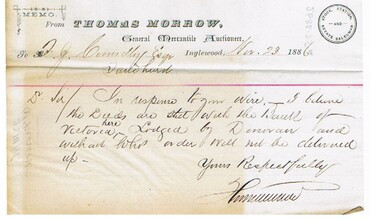 MEMO.
From THOMAS MORROW,
General Mercantile Auctioneer.
Inglewood, Nov. 23 1886
To J. Connelly Esqr
Sandhurst
Dr Sir/ In response to your wire, – I believe
the Deeds are still with the Bank of
Victoria here Lodged by Donovan and
without whose order will not be delivered
up –
Yours Respectfully